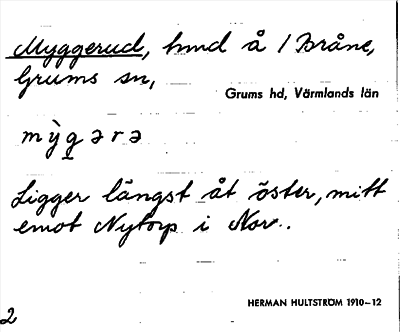 Myggerud, hmd å 1 Bråne,
Grums sn,
Grums hd, Värmlands län
mỳgərə
Ligger längst åt öster, mitt
emot Nytorp i Nor.
HERMAN HULTSTRÖM 1910–12
2